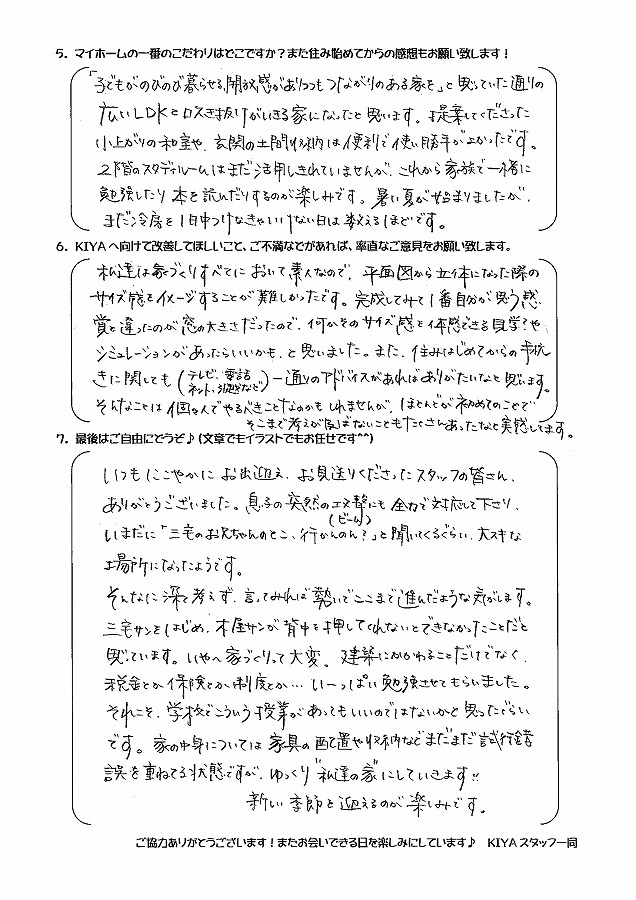 5. マイホームの一番のこだわりはどこですか?また住み始めてからの感想もお願い致します!
「子どもがのびのび暮らせる、開放感がありつつもつながりのある家を」と思っていた通りの
広いLDKとロスき抜けがいきる家になったと思います。提案してくださった
小上がりの和室や、玄関の土間収納は便利で使い勝手がよかったです。
2階のスタディルームはまだ活用しきれていませんが、これから家族で一緒に
勉強したり本を読んだりするのが楽しみです。暑い夏が始まりましたが、
まだ冷房を1日中つけなきゃいけない日は数えるほどです。
6. KIYAへ向けて改善してほしいこと、ご不満などがあれば、率直なご意見をお願い致します。
私達は家づくりすべてにおいて素人なので、平面図から立体になった際の
サイズ感をイメージすることが難しかったです。完成してみて1番自分が思う感
覚と違ったのが窓の大きさだったので、何かそのサイズ感を体感できる見学?や、
シミュレーションがあったらいいかも、と思いました。また、住みはじめてからの手続
きに関しても(テレビ、電話、ネット、引越など)一通りのアドバイスがあればありがたいなと思います。
そんなことは個々人でやるべきことなのかもしれませんが、ほとんどが初めてのことで
そこまで考えが及ばないこともたくさんあったなと実感してます。
7. 最後はご自由にどうぞ♪(文章でもイラストでもお任せです^^)
いつもにこやかにお出迎え、お見送りくださったスタッフの皆さん、
ありがとうございました。息子の突然の攻撃にも全力で対応して下さり、
(ビーム)
いまだに「三宅のお兄ちゃんのとこ、行かんのん?」と聞いてくるぐらい、大スキな
場所になったようです。
そんなに深く考えず、言ってみれば勢いでここまで進んだような気がします。
三宅サンをはじめ、木屋サンが背中を押してくれないとできなかったことだと
思っています。いやへ家づくりって大変。建築にかかわることだけでなく、
税金とか保険とか制度とか…いーっぱい勉強させてもらいました。
それこそ、学校でこういう授業があってもいいのではないかと思ったぐらい
です。家の中身については家具の配置や収納などまだまだ試行錯
誤を重ねてる状態ですが、ゆっくり"私達の家"にしていきます!!
新しい季節を迎えるのが楽しみです。
ご協力ありがとうございます!またお会いできる日を楽しみにしています♪ KIYAスタッフ一同